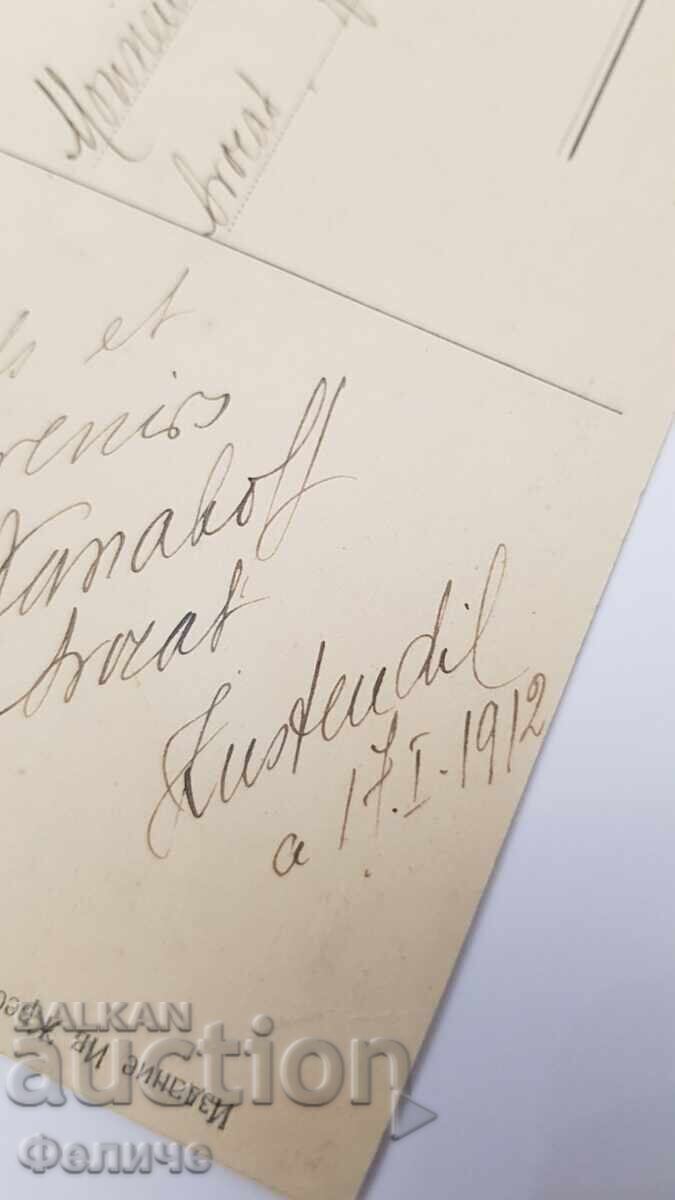 avocat
et
Kanakoff
avocat
Kustendil
a 17.I.1912
Издание Ив.
BALKAN
auction
Феличе